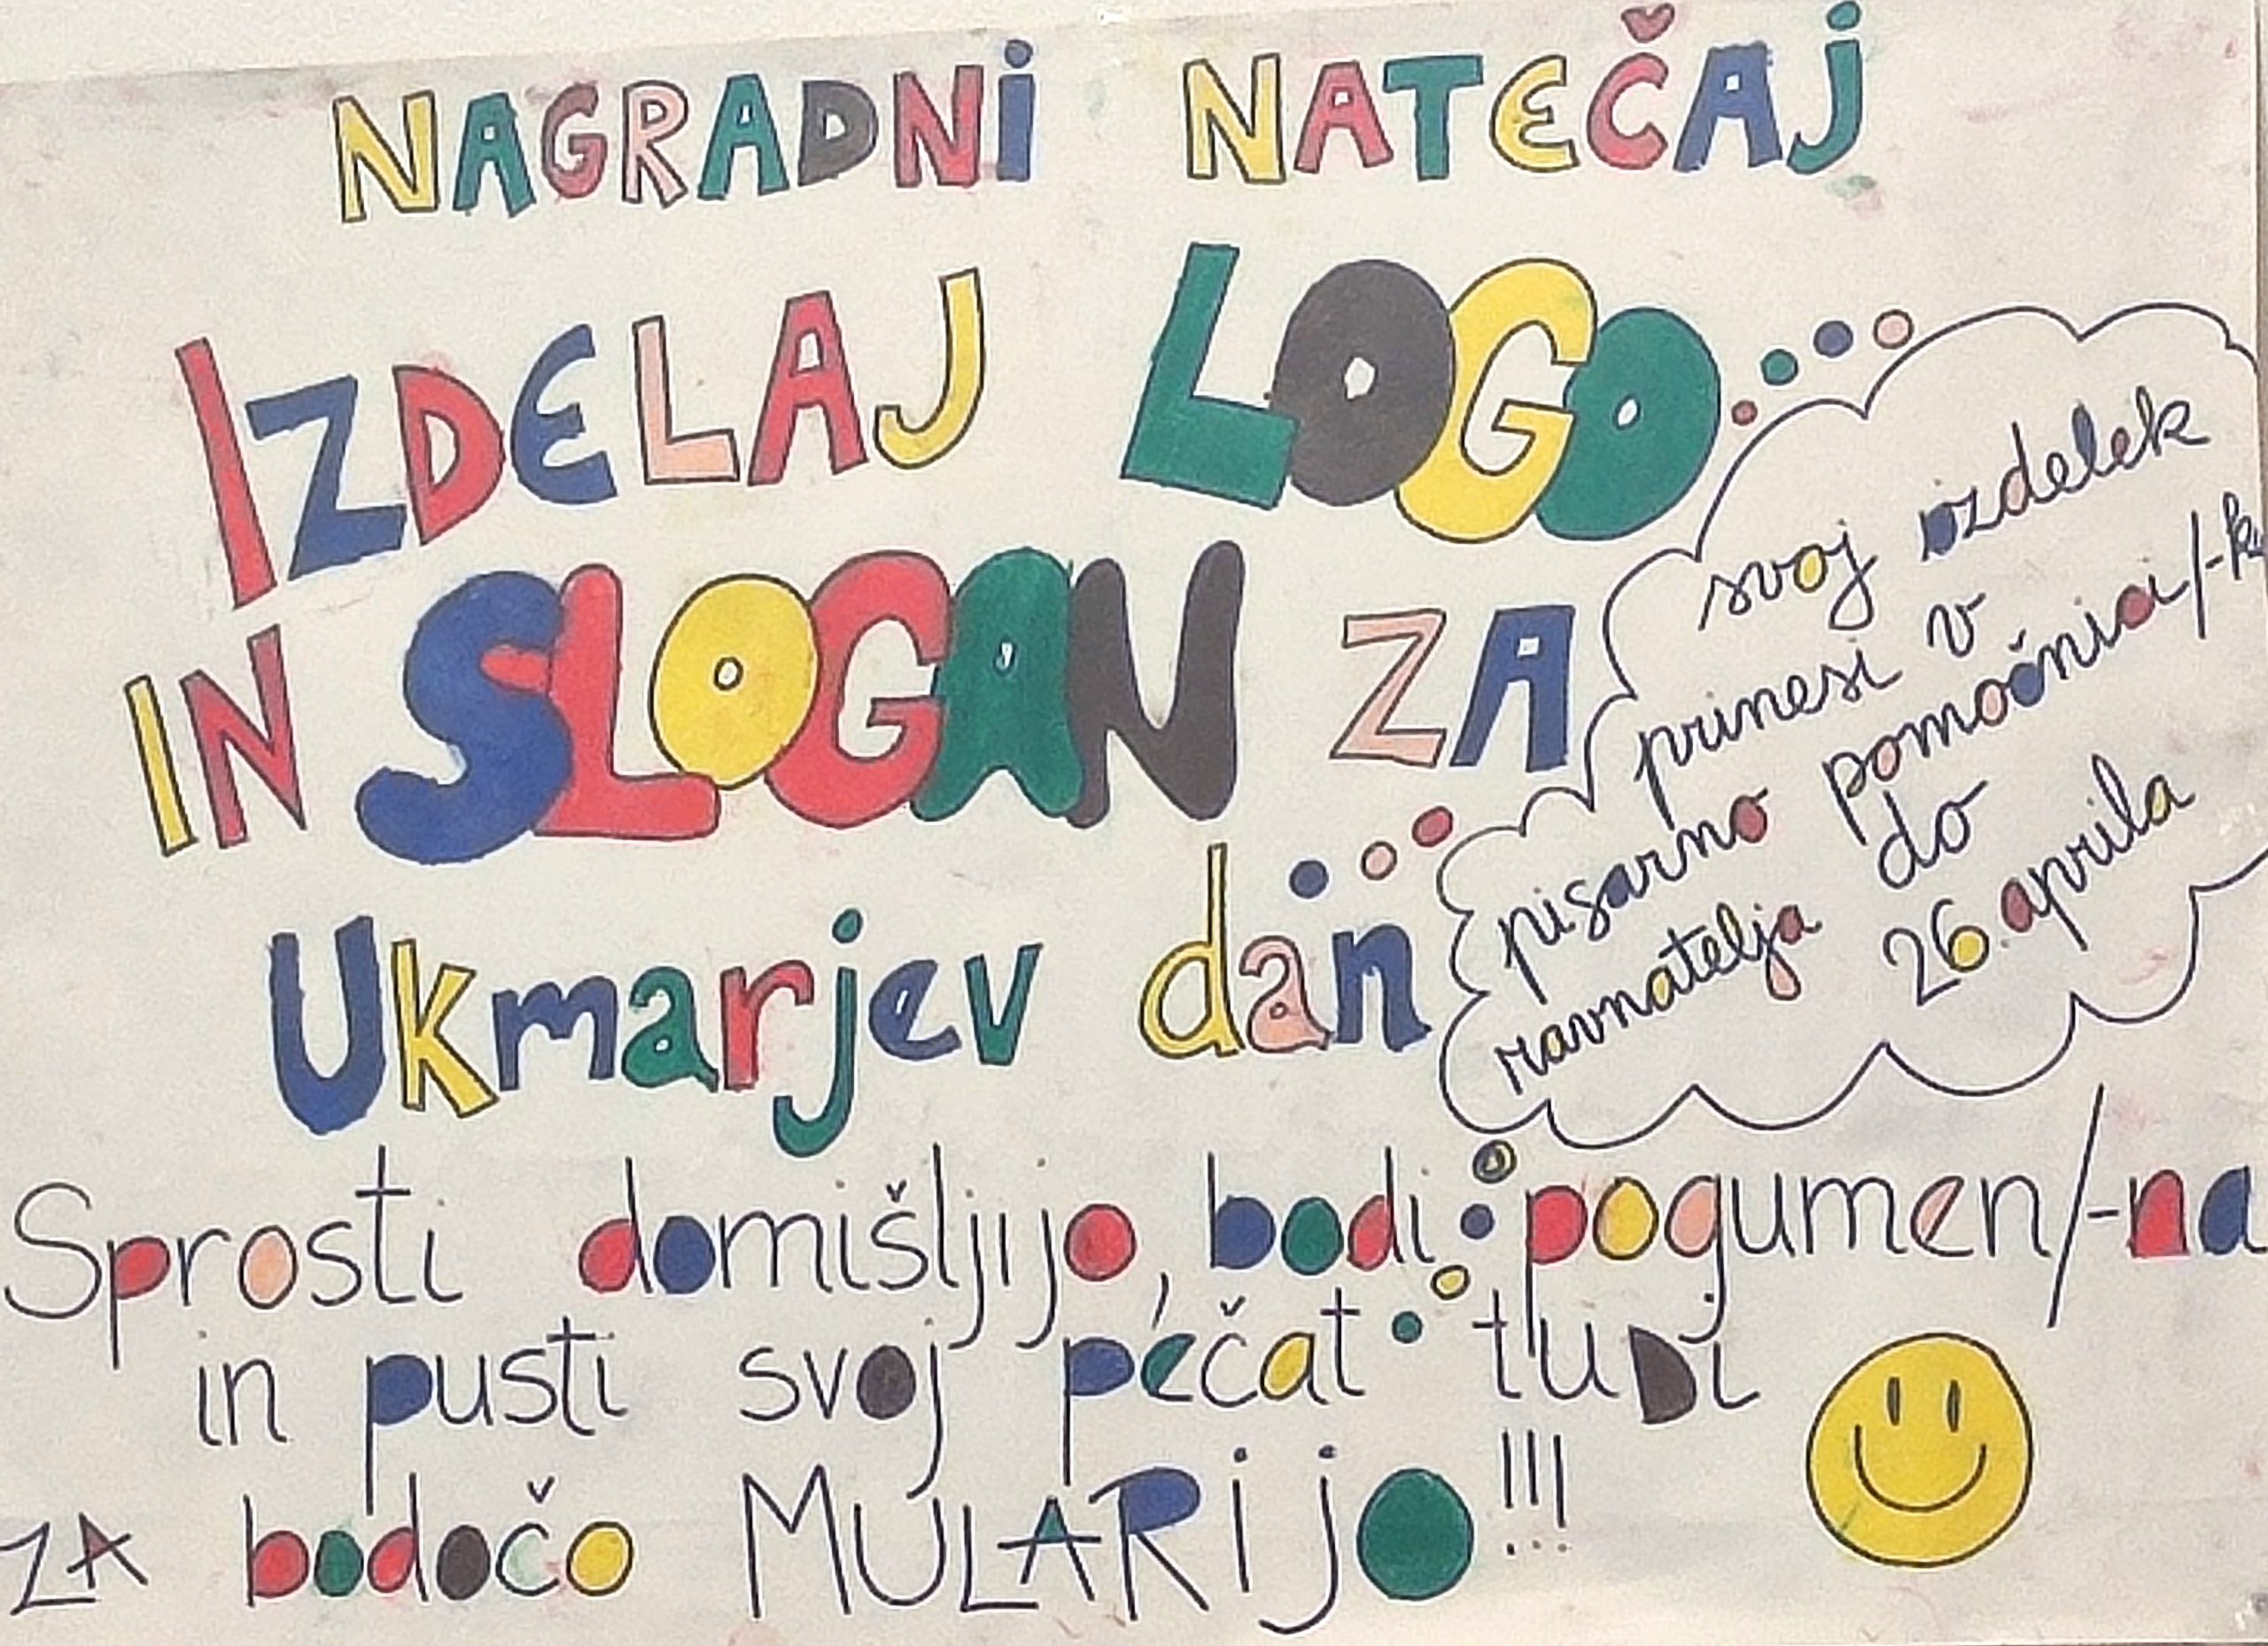 NAGRADNI NATEČAJ
IZDELAJ LOGO
IN SLOGAN ZA
Ukmarjev dan
svoj izdelek
prinesi v
pisarno pomočnica/-k
ravnatelja do
26. aprila
Sprosti domišljijo, bodi pogumen/-na
in pusti svoj pečat tudi
ZA bodočo MULARijo!!!